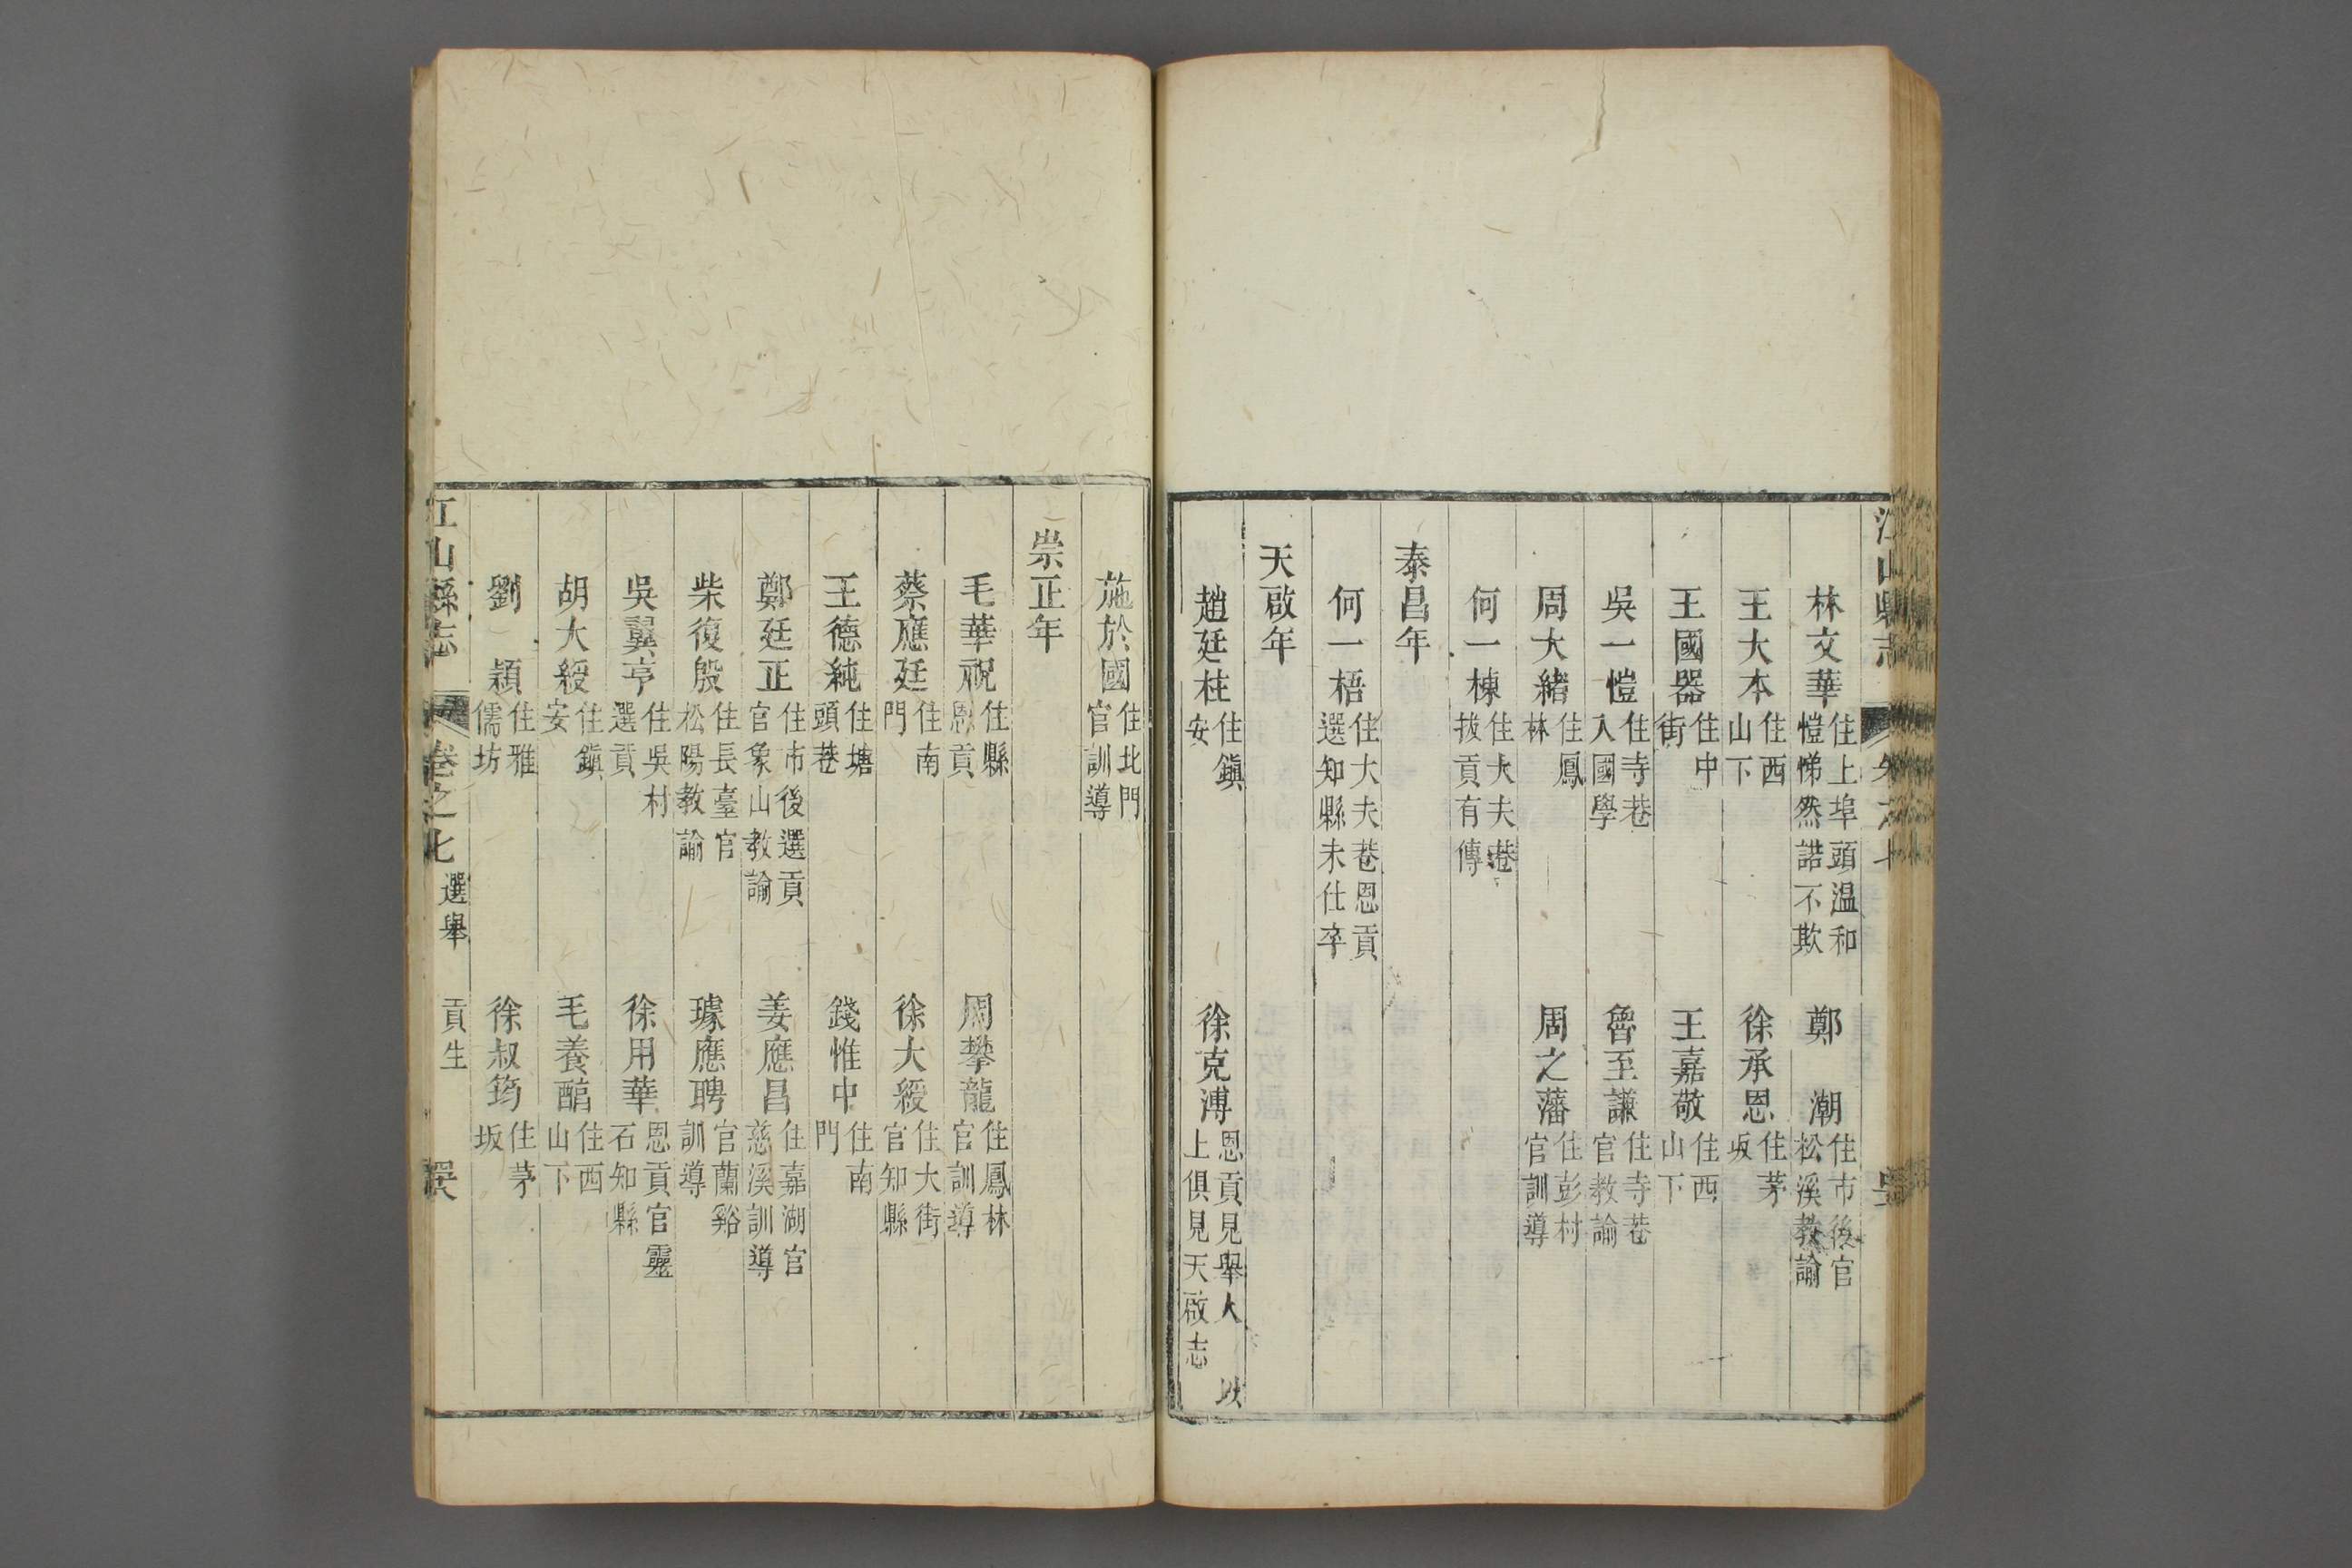 林文華住上埠頭温和愷悌然諾不欺 鄭 潮住市後官松溪教諭
王大本住西山下 徐承恩住茅坂
王國器住中街 王嘉敬住西山下
吳一愷住寺巷入國學 魯至謙住寺巷官教諭
周大緒住鳳林 周之藩住彭村官訓導
何一棟住大夫巷拔貢有傳
泰昌年
何一梧住大夫巷恩貢選知縣未仕卒
天啟年
趙廷柱住鎭安 徐克溥恩貢見舉人 以上俱見天啟志
施於國住北門官訓導
崇正年
毛華祝住縣恩貢 周攀龍住鳳林官訓導
蔡應廷住南門 徐大綬住大街官知縣
王德純住塘頭巷 錢惟中住南門
鄭廷正住市後選貢官象山教諭 姜應昌住嘉湖官慈溪訓導
柴復殷住長臺官松陽教諭 璩應聘官蘭谿訓導
吳翼亨住吳村選貢 徐用華恩貢官靈石知縣
胡大綬住鎭安 毛養醕住西山下
劉 穎住雅儒坊 徐叔筠住茅坂
江山縣志 卷之七 選舉 貢生